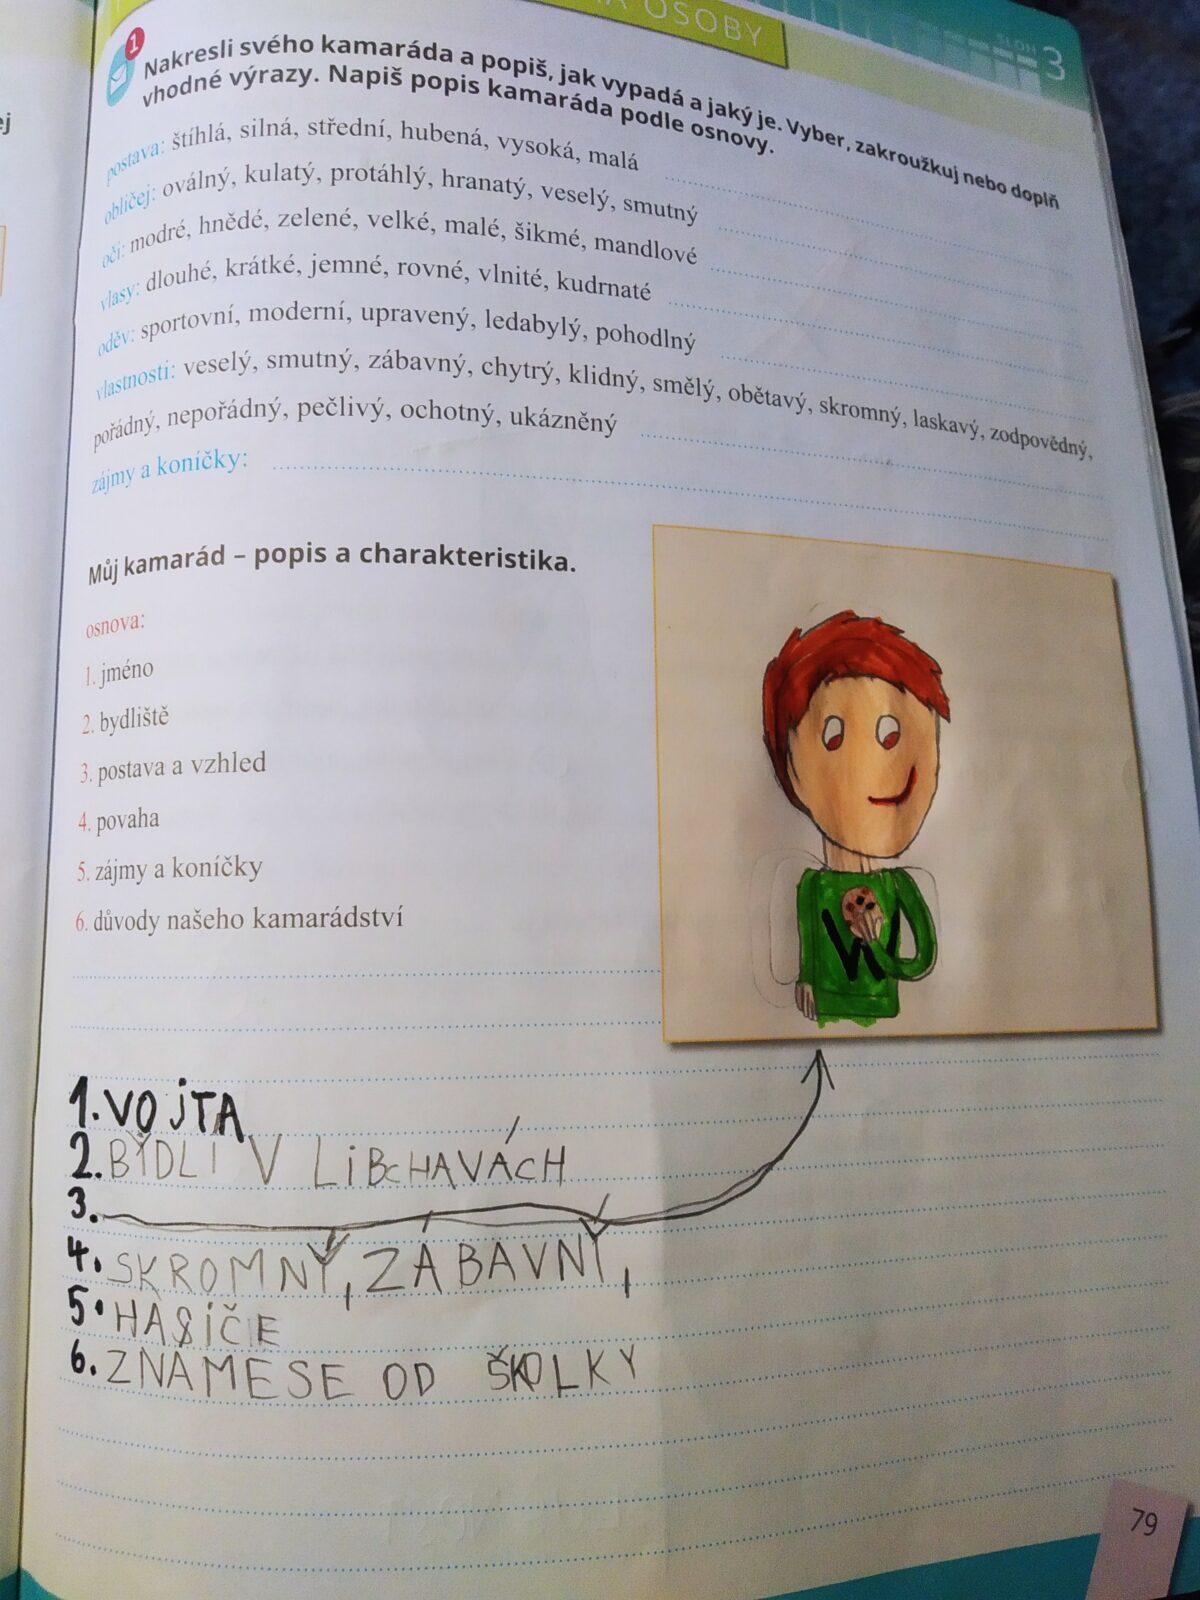 OSOBY
SLOH 3
1
Nakresli svého kamaráda a popiš, jak vypadá a jaký je. Vyber, zakroužkuj nebo doplň
vhodné výrazy. Napiš popis kamaráda podle osnovy.
postava: štíhlá, silná, střední, hubená, vysoká, malá
obličej: oválný, kulatý, protáhlý, hranatý, veselý, smutný
oči: modré, hnědé, zelené, velké, malé, šikmé, mandlové
vlasy: dlouhé, krátké, jemné, rovné, vlnité, kudrnaté
oděv: sportovní, moderní, upravený, ledabylý, pohodlný
vlastnosti: veselý, smutný, zábavný, chytrý, klidný, smělý, obětavý, skromný, laskavý, zodpovědný,
pořádný, nepořádný, pečlivý, ochotný, ukázněný
zájmy a koníčky:
Můj kamarád – popis a charakteristika.
osnova:
1. jméno
2. bydliště
3. postava a vzhled
4. povaha
5. zájmy a koníčky
6. důvody našeho kamarádství
1. VOJTA
2. BÝDLI V LiBcHAVÁCH
3.
4. SKROMNÝ, ZÁBAVNÝ,
5. HASiČE
6. ZNÁMESE OD ŠKOLKY
79